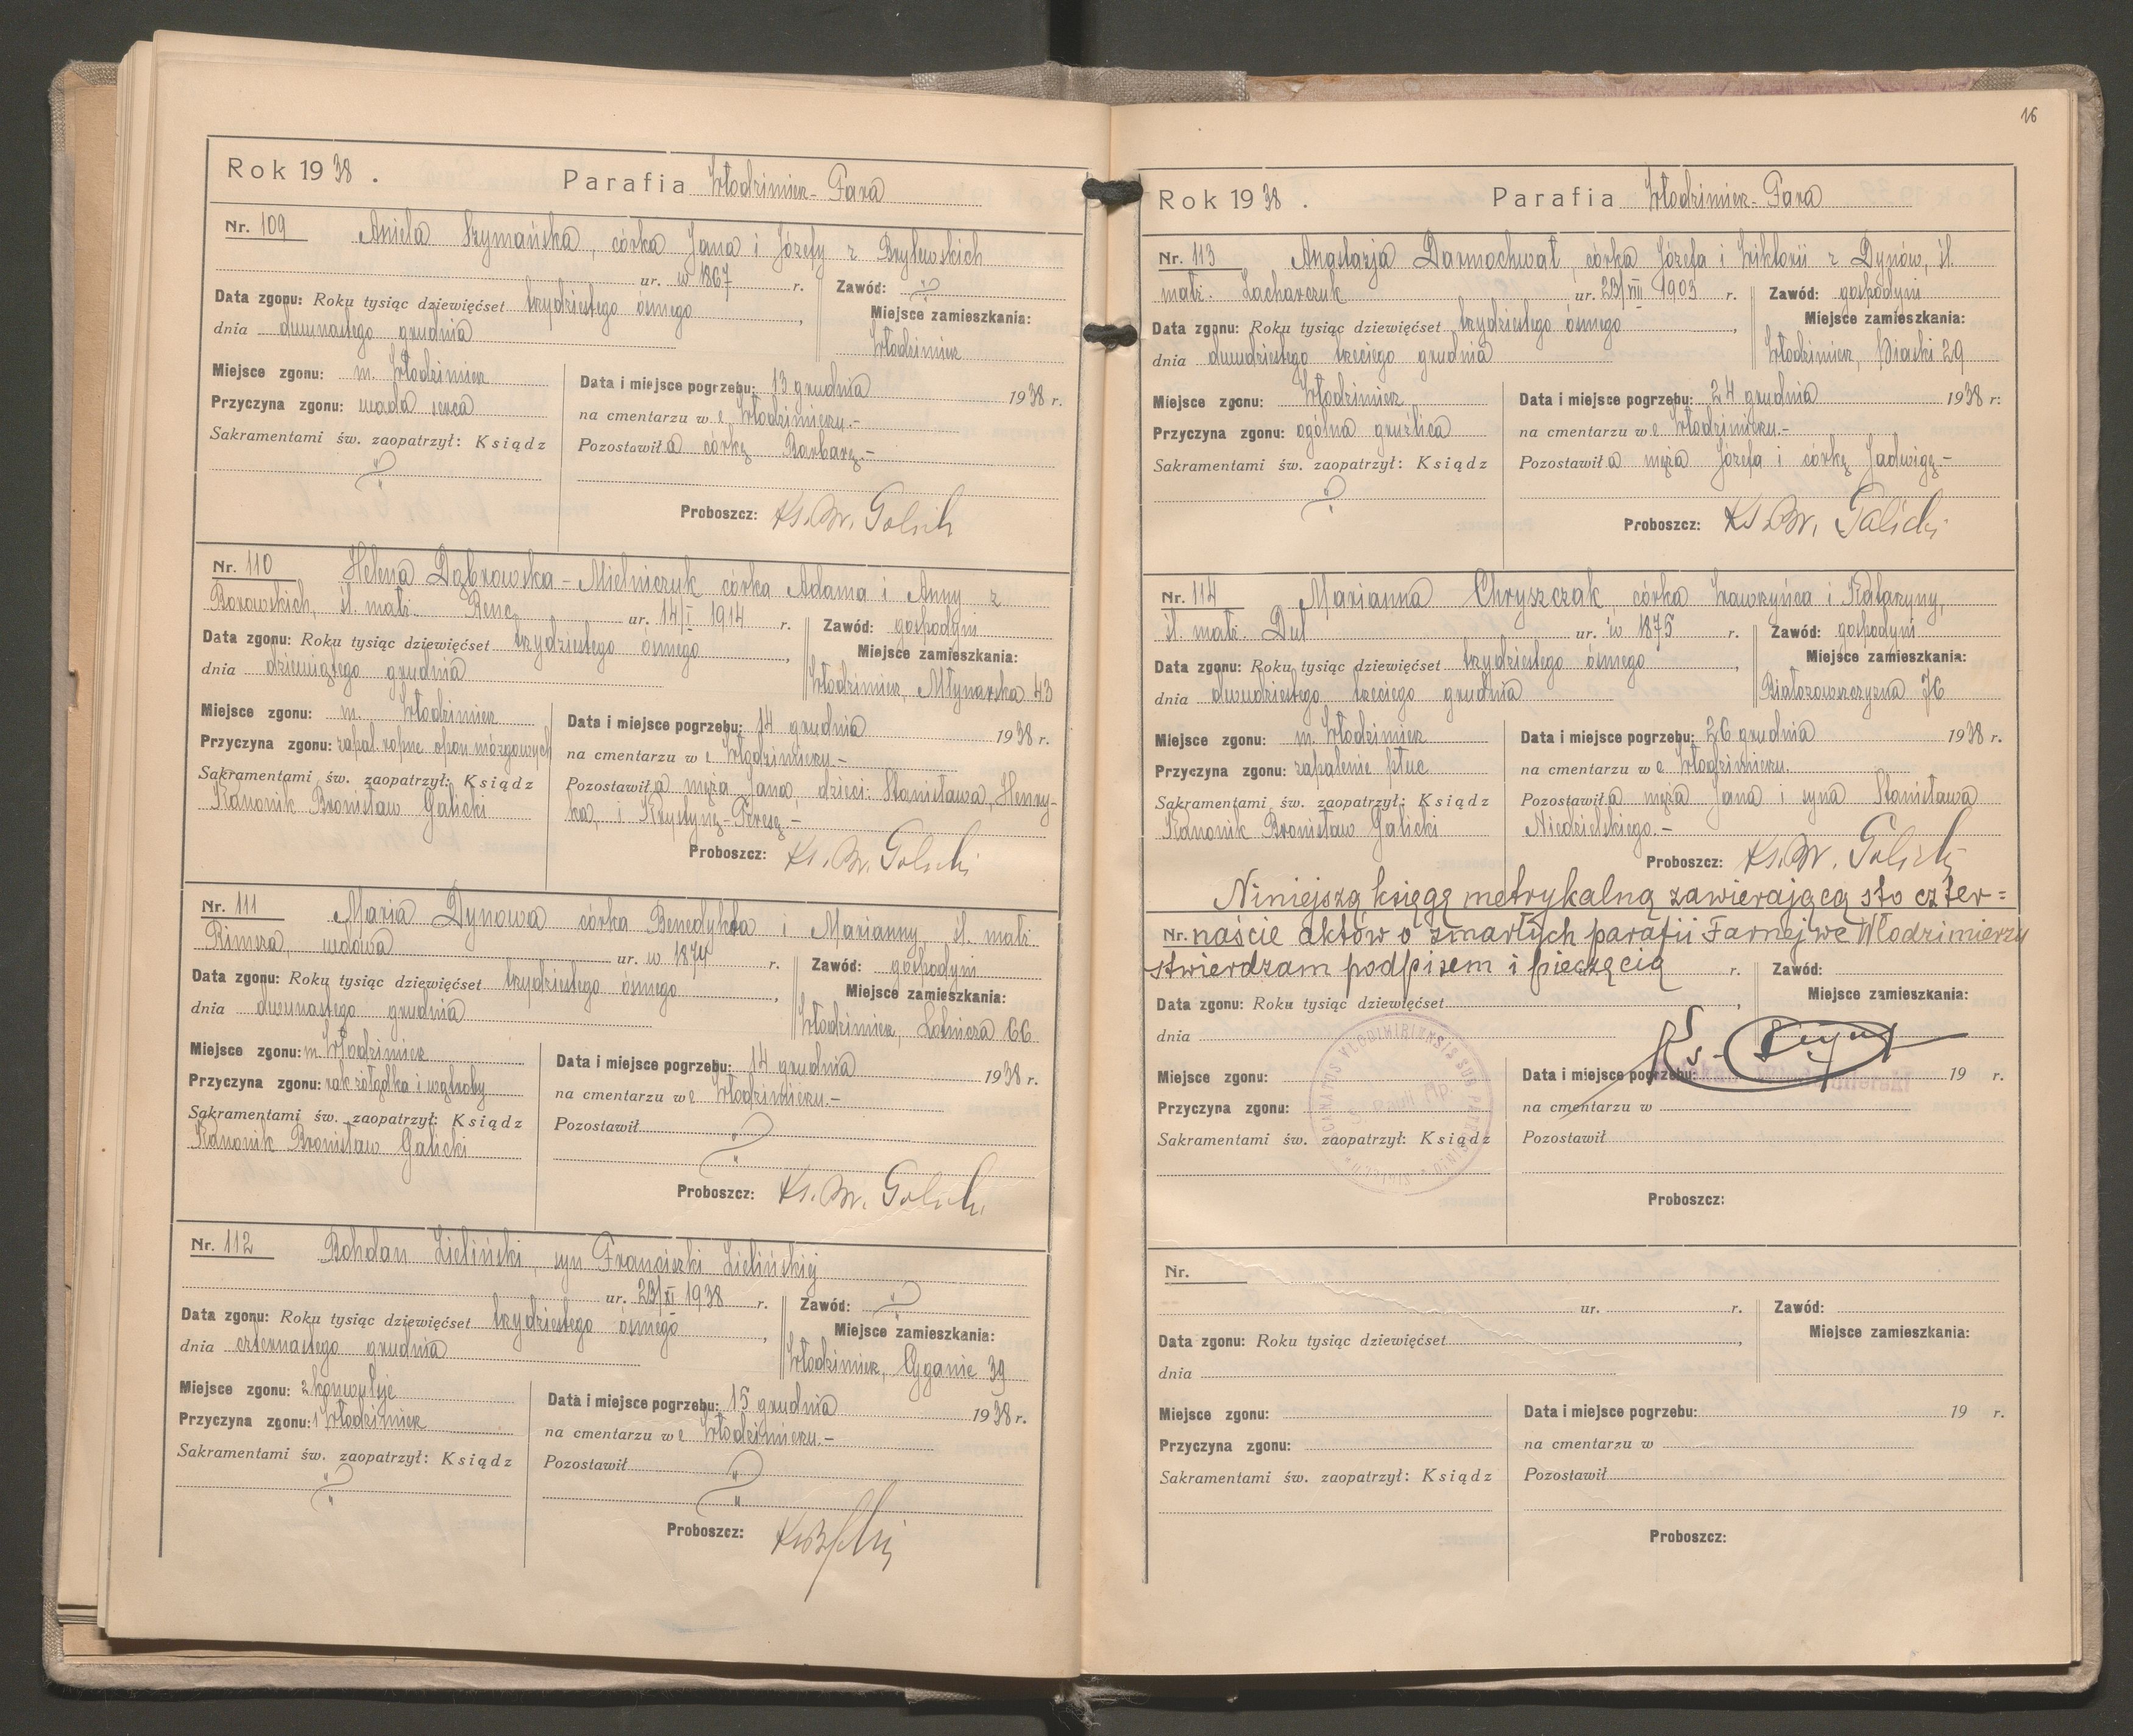 Rok 1938. Parafia Włodzimierz-Fara
Nr. 109 Aniela Szymańska, córka Jana i Józefy z Brylewskich
ur. w 1867 r. Zawód:
Data zgonu: Roku tysiąc dziewięćset trzydziestego ósmego, Miejsce zamieszkania:
dnia dwunastego grudnia Włodzimierz
Miejsce zgonu: m. Włodzimierz Data i miejsce pogrzebu: 13 grudnia 1938 r.
Przyczyna zgonu: wada serca na cmentarzu we Włodzimierzu.-
Sakramentami św. zaopatrzył: Ksiądz Pozostawiła córkę Barbarę.-
Proboszcz: Ks. Br. Galicki
Nr. 110 Helena Dąbrowska-Mielniczuk córka Adama i Anny z
Borowskich, śl. małż. Benc ur. 14/I 1914 r. Zawód: gospodyni
Data zgonu: Roku tysiąc dziewięćset trzydziestego ósmego, Miejsce zamieszkania:
dnia dziewiątego grudnia Włodzimierz, Młynarska 43
Miejsce zgonu: m. Włodzimierz Data i miejsce pogrzebu: 14 grudnia 1938 r.
Przyczyna zgonu: zapal. ropne opon mózgowych na cmentarzu we Włodzimierzu.-
Sakramentami św. zaopatrzył: Ksiądz Pozostawiła męża Jana, dzieci: Stanisława, Henry-
Kanonik Bronisław Galicki ka, i Krystynę-Teresę.-
Proboszcz: Ks. Br. Galicki
Nr. 111 Maria Dynowa córka Benedykta i Marianny, śl. małż.
Rimsza, wdowa ur. w 1874 r. Zawód: gospodyni
Data zgonu: Roku tysiąc dziewięćset trzydziestego ósmego, Miejsce zamieszkania:
dnia dwunastego grudnia Włodzimierz, Lotnicza 66
Miejsce zgonu: m. Włodzimierz Data i miejsce pogrzebu: 14 grudnia 1938 r.
Przyczyna zgonu: rak żołądka i wątroby na cmentarzu we Włodzimierzu.-
Sakramentami św. zaopatrzył: Ksiądz Pozostawił
Kanonik Bronisław Galicki
Proboszcz: Ks. Br. Galicki
Nr. 112 Bohdan Zieliński, syn Franciszki Zielińskiej
ur. 23/XI 1938 r. Zawód:
Data zgonu: Roku tysiąc dziewięćset trzydziestego ósmego, Miejsce zamieszkania:
dnia czternastego grudnia Włodzimierz, Cyganie 39
Miejsce zgonu: 2 konwulsje Data i miejsce pogrzebu: 15 grudnia 1938 r.
Przyczyna zgonu: 1 Włodzimierz na cmentarzu we Włodzimierzu.-
Sakramentami św. zaopatrzył: Ksiądz Pozostawił
Proboszcz:
16
Rok 1938. Parafia Włodzimierz-Fara
Nr. 113 Anastazja Darmochwał, córka Józefa i Wiktorii z Dynów, śl.
małż. Zacharczuk ur. 23/VIII 1903 r. Zawód: gospodyni
Data zgonu: Roku tysiąc dziewięćset trzydziestego ósmego, Miejsce zamieszkania:
dnia dwudziestego trzeciego grudnia Włodzimierz, Piaski 29
Miejsce zgonu: Włodzimierz Data i miejsce pogrzebu: 24 grudnia 1938 r.
Przyczyna zgonu: ogólna gruźlica na cmentarzu we Włodzimierzu.-
Sakramentami św. zaopatrzył: Ksiądz Pozostawiła męża Józefa i córkę Jadwigę.-
Proboszcz: Ks. Br. Galicki
Nr. 114 Marianna Chryszczak, córka Wawrzyńca i Katarzyny,
śl. małż. Dul ur. w 1875 r. Zawód: gospodyni
Data zgonu: Roku tysiąc dziewięćset trzydziestego ósmego, Miejsce zamieszkania:
dnia dwudziestego trzeciego grudnia Białozowszczyzna 76
Miejsce zgonu: m. Włodzimierz Data i miejsce pogrzebu: 26 grudnia 1938 r.
Przyczyna zgonu: zapalenie płuc na cmentarzu we Włodzimierzu.
Sakramentami św. zaopatrzył: Ksiądz Pozostawiła męża Jana i syna Stanisława
Kanonik Bronisław Galicki Niedzielskiego.-
Proboszcz: Ks. Br. Galicki
Niniejszą księgę metrykalną zawierającą sto czter=
Nr. naście aktów o zmarłych parafii Farnej we Włodzimierzu
stwierdzam podpisem i pieczęcią r. Zawód:
Data zgonu: Roku tysiąc dziewięćset, Miejsce zamieszkania:
dnia Ks.
Miejsce zgonu: Data i miejsce pogrzebu: 19 r.
Przyczyna zgonu: na cmentarzu w
Sakramentami św. zaopatrzył: Ksiądz Pozostawił
Proboszcz:
Nr.
ur. r. Zawód:
Data zgonu: Roku tysiąc dziewięćset, Miejsce zamieszkania:
dnia
Miejsce zgonu: Data i miejsce pogrzebu: 19 r.
Przyczyna zgonu: na cmentarzu w
Sakramentami św. zaopatrzył: Ksiądz Pozostawił
Proboszcz: